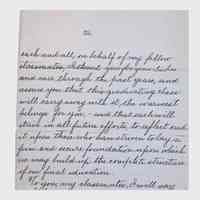 to
each and all, on behalf of my fellow
classmates, I thank you for your kindness
and care through the past years, and
assure you that this graduating class
will carry away with it, the warmest
feelings for you, - and that each will
strive in all future efforts, to reflect credit
it upon those who have striven to lay a
firm and secure foundation upon which
we may build up the complete structure
of our final education.
To you, my classmates, I will say